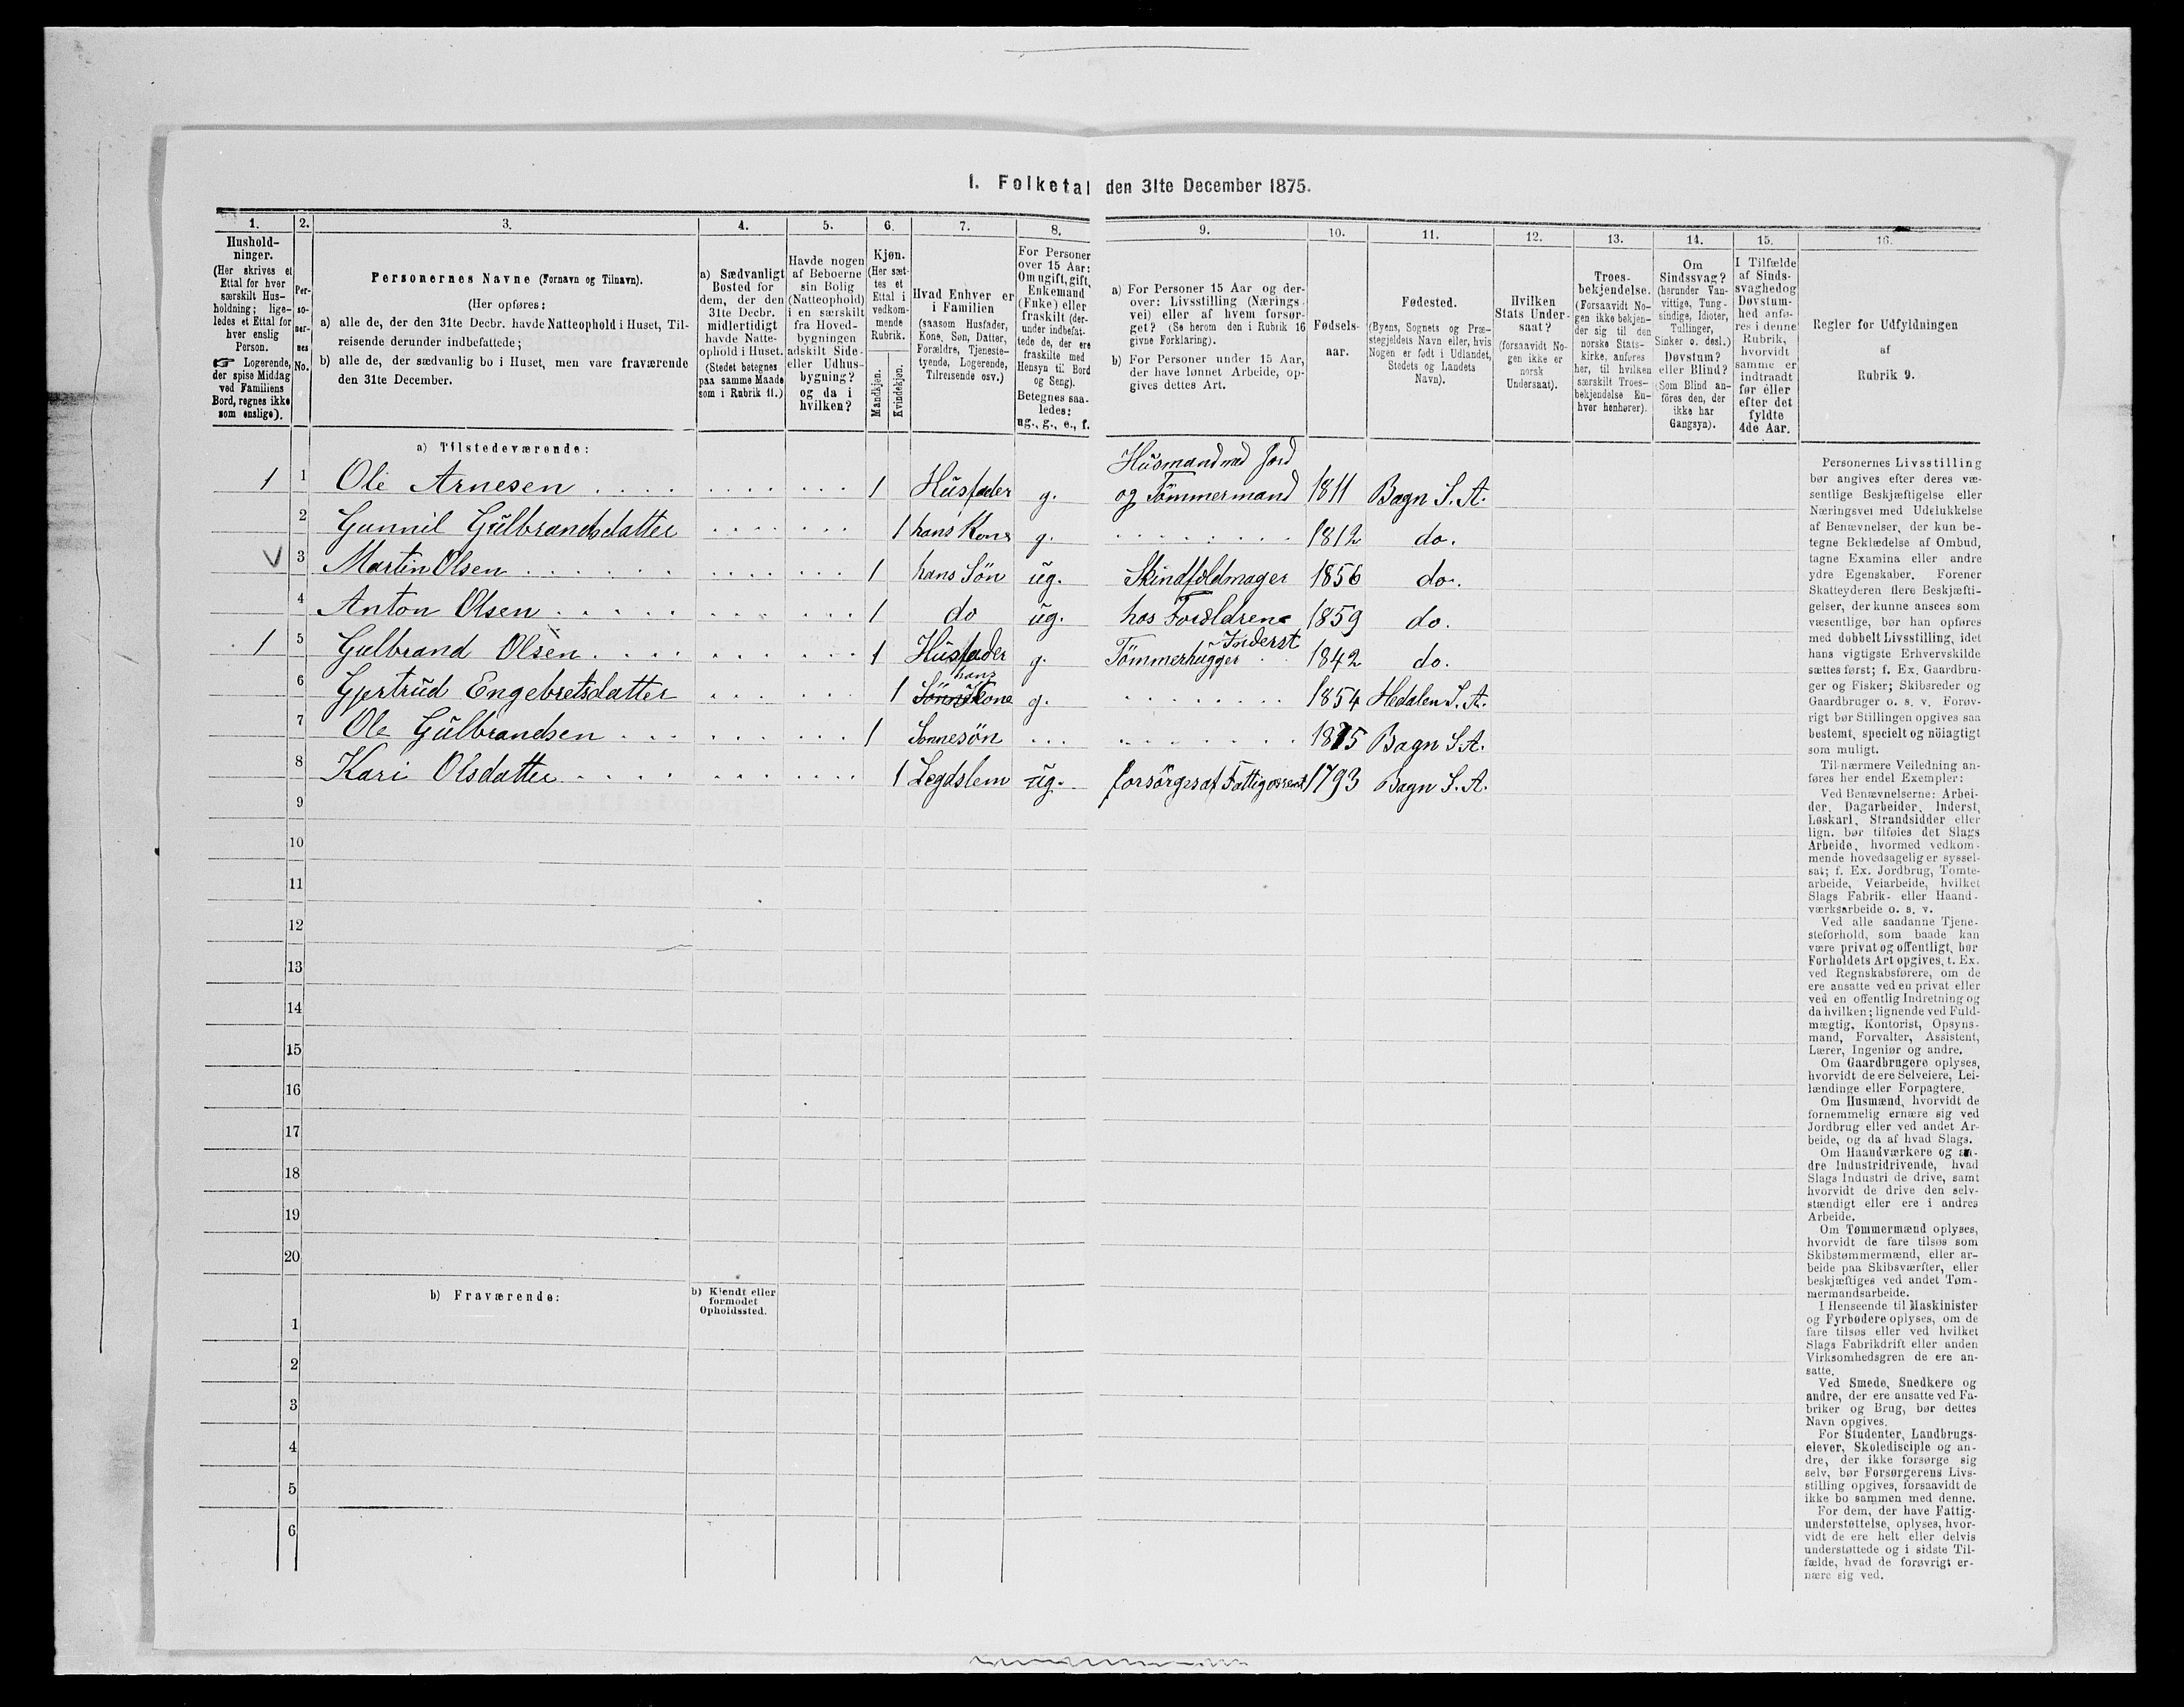 1. Folketal den 31te December 1875.
1.
Hushold-
ninger.
(Her skrives et
Ettal for hver
særskilt Hus-
holdning; lige-
ledes et Ettal for
hver enslig
Person.
☞ Logerende,
der spise Middag
ved Familiens
Bord, regnes ikke
som enslige).
2.
Per-
so-
ner-
nes
No.
3.
Personernes Navne (Fornavn og Tilnavn).
(Her opføres:
a) alle de, der den 31te Decbr. havde Natteophold i Huset, Til-
reisende derunder indbefattede;
b) alle de, der sædvanlig bo i Huset, men vare fraværende
den 31te December.
4.
a) Sædvanligt
Bosted for
dem, der den
31te Decbr.
midlertidigt
havde Natte-
ophold i Huset.
(Stedet betegnes
paa samme Maade
som i Rubrik 11.)
5.
Havde nogen
af Beboerne
sin Bolig
(Natteophold)
i en særskilt
fra Hoved-
bygningen
adskilt Side-
eller Udhus-
bygning?
og da i
hvilken?
6.
Kjøn.
(Her sæt-
tes et
Ettal i
vedkom-
mende
Rubrik.
Mandkjøn.
Kvindekjøn.
7.
Hvad Enhver er
i Familien
(saasom Husfader,
Kone, Søn, Datter,
Forældre, Tjeneste-
tyende, Logerende,
Tilreisende osv.)
8.
For Personer
over 15 Aar:
Om ugift, gift,
Enkemand
(Enke) eller
fraskilt (der-
under indbefat-
tede de, der ere
fraskilte med
Hensyn til Bord
og Seng).
Betegnes saa-
ledes:
ug., g., e., f.
9.
a) For Personer 15 Aar og der-
over: Livsstilling (Nærings-
vei) eller af hvem forsør-
get? (Se herom den i Rubrik 16
givne Forklaring).
b) For Personer under 15 Aar,
der have lønnet Arbeide, op-
gives dettes Art.
10.
Fødsels-
aar.
11.
Fødested.
(Byens, Sognets og Præ-
stegjeldets Navn eller, hvis
Nogen er født i Udlandet,
Stedets og Landets
Navn).
12.
Hvilken
Stats Under-
saat?
(forsaavidt No-
gen ikke er
norsk
Undersaat).
13.
Troes-
bekjendelse.
(Forsaavidt No-
gen ikke bekjen-
der sig til den
norske Stats-
kirke, anføres
her, til hvilken
særskilt Troes-
bekjendelse En-
hver henhører).
14.
Om
Sindssvag?
(herunder Van-
vittige, Tung-
sindige, Idioter,
Tullinger,
Sinker o. desl.)
Døvstum?
eller Blind?
(Som Blind an-
føres den, der
ikke har
Gangsyn).
15.
I Tilfælde
af Sinds-
svaghed og
Døvstum-
hed anfø-
res i denne
Rubrik,
hvorvidt
samme er
indtraadt
før eller
efter det
fyldte
4de Aar.
16.
Regler for Udfyldningen
af
Rubrik 9.
a) Tilstedeværende:
Husmand med Jord
1 1 Ole Arnesen 1 Husfader g. og Tömmermand 1811 Bagn S. A.
2 Gunnil Gülbrandsdatter 1 hans Kone g. 1812 do.
3 Martin Olsen 1 hans Sön üg. Skindfeldmager 1856 do.
4 Anton Olsen 1 do üg. hos Forældrene 1859 do.
Inderst
1 5 Gulbrand Olsen 1 Husfader g. Tömmerhügger 1842 do.
hans
6 Gjertrüd Engebretsdatter 1 Sönns Kone g. 1854 Hedalen S. A.
7 Ole Gülbrandsen 1 Sonnesön 1875 Bagn S. A.
8 Kari Olsdatter 1 Legdslem üg. forsörges af 1793 Bagn S. A.
9
10
11
12
13
14
15
16
17
18
19
20
b) Fraværende:
b) Kjendt eller
formodet
Opholdssted.
1
2
3
4
5
6
Personernes Livsstilling
bør angives efter deres væ-
sentlige Beskjæftigelse eller
Næringsvei med Udelukkelse
af Benævnelser, der kun be-
tegne Beklædelse af Ombud,
tagne Examina eller andre
ydre Egenskaber. Forener
Skatteyderen flere Beskjæfti-
gelser, der kunne ansees som
væsentlige, bør han opføres
med dobbelt Livsstilling, idet
hans vigtigste Erhvervskilde
sættes først; f. Ex. Gaardbru-
ger og Fisker; Skibsreder og
Gaardbruger o. s. v. Forøv-
rigt bør Stillingen opgives saa
bestemt, specielt og nöiagtigt
som muligt.
Til nærmere Veiledning an-
føres her endel Exempler:
Ved Benævnelserne: Arbei-
der, Dagarbeider, Inderst,
Løskarl, Strandsidder eller
lign. bør tilføies det Slags
Arbeide, hvormed vedkom-
mende hovedsagelig er syssel-
sat; f. Ex. Jordbrug, Tomte-
arbeide, Veiarbeide, hvilket
Slags Fabrik- eller Haand-
værksarbeide o. s. v.
Ved alle saadanne Tjene-
steforhold, som baade kan
være privat og offentligt, bør
Forholdets Art opgives, t. Ex.
ved Regnskabsførere, om de
ere ansatte ved en privat eller
ved en offentlig Indretning og
da hvilken; lignende ved Fuld-
mægtig, Kontorist, Opsyns-
mand, Forvalter, Assistent,
Lærer, Ingeniør og andre.
Om Gaardbrugere oplyses,
hvorvidt de ere Selveiere, Lei-
lændinge eller Forpagtere.
Om Husmænd, hvorvidt de
fornemmelig ernære sig ved
Jordbrug eller ved andet Ar-
beide, og da af hvad Slags.
Om Haandværkere og an-
dre Industridrivende, hvad
Slags Industri de drive, samt
hvorvidt de drive den selv-
stændigt eller ere i andres
Arbeide.
Om Tømmermænd oplyses,
hvorvidt de fare tilsøs som
Skibstømmermænd, eller ar-
beide paa Skibsværfter, eller
beskjæftiges ved andet Tøm-
mermandsarbeide.
I Henseende til Maskinister
og Fyrbødere oplyses, om de
fare tilsøs eller ved hvilket
Slags Fabrikdrift eller anden
Virksomhedsgren de ere an-
satte.
Ved Smede, Snedkere og
andre, der ere ansatte ved Fa-
briker og Brug, bør dettes
Navn opgives.
For Studenter, Landbrugs-
elever, Skoledisciple og an-
dre, der ikke forsørge sig
selv, bør Forsørgerens Livs-
stilling opgives, forsaavidt de
ikke bo sammen med denne.
For dem, der have Fattig-
understøttelse, oplyses, hvor-
vidt de ere helt eller delvis
understøttede og i sidste Til-
fælde, hvad de forøvrigt er-
nære sig ved.